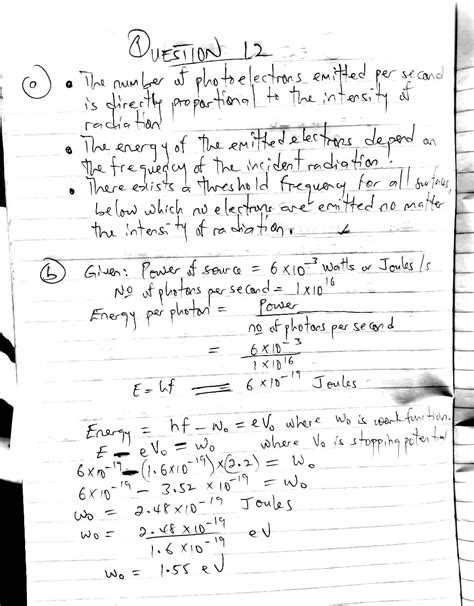 QUESTION 12
(a) • The number of photoelectrons emitted per second
is directly proportional to the intensity of
radiation
• The energy of the emitted electrons depend on
the frequency of the incident radiation.
• There exists a threshold frequency for all surfaces,
below which no electrons are emitted no matter
the intensity of radiation.
(b) Given: Power of source = 6×10⁻³ Watts or Joules/s
No of photons per second = 1×10¹⁶
Energy per photon = Power
no of photons per second
= 6×10⁻³
1×10¹⁶
E = hf = 6×10⁻¹⁹ Joules
Energy = hf - W₀ = eV₀ where W₀ is workfunction.
E - eV₀ = W₀ where V₀ is stopping potential
6×10⁻¹⁹ - (1.6×10⁻¹⁹)×(2.2) = W₀
6×10⁻¹⁹ - 3.52 ×10⁻¹⁹ = W₀
W₀ = 2.48×10⁻¹⁹ Joules
W₀ = 2.48×10⁻¹⁹ eV
1.6×10⁻¹⁹
W₀ = 1.55 eV